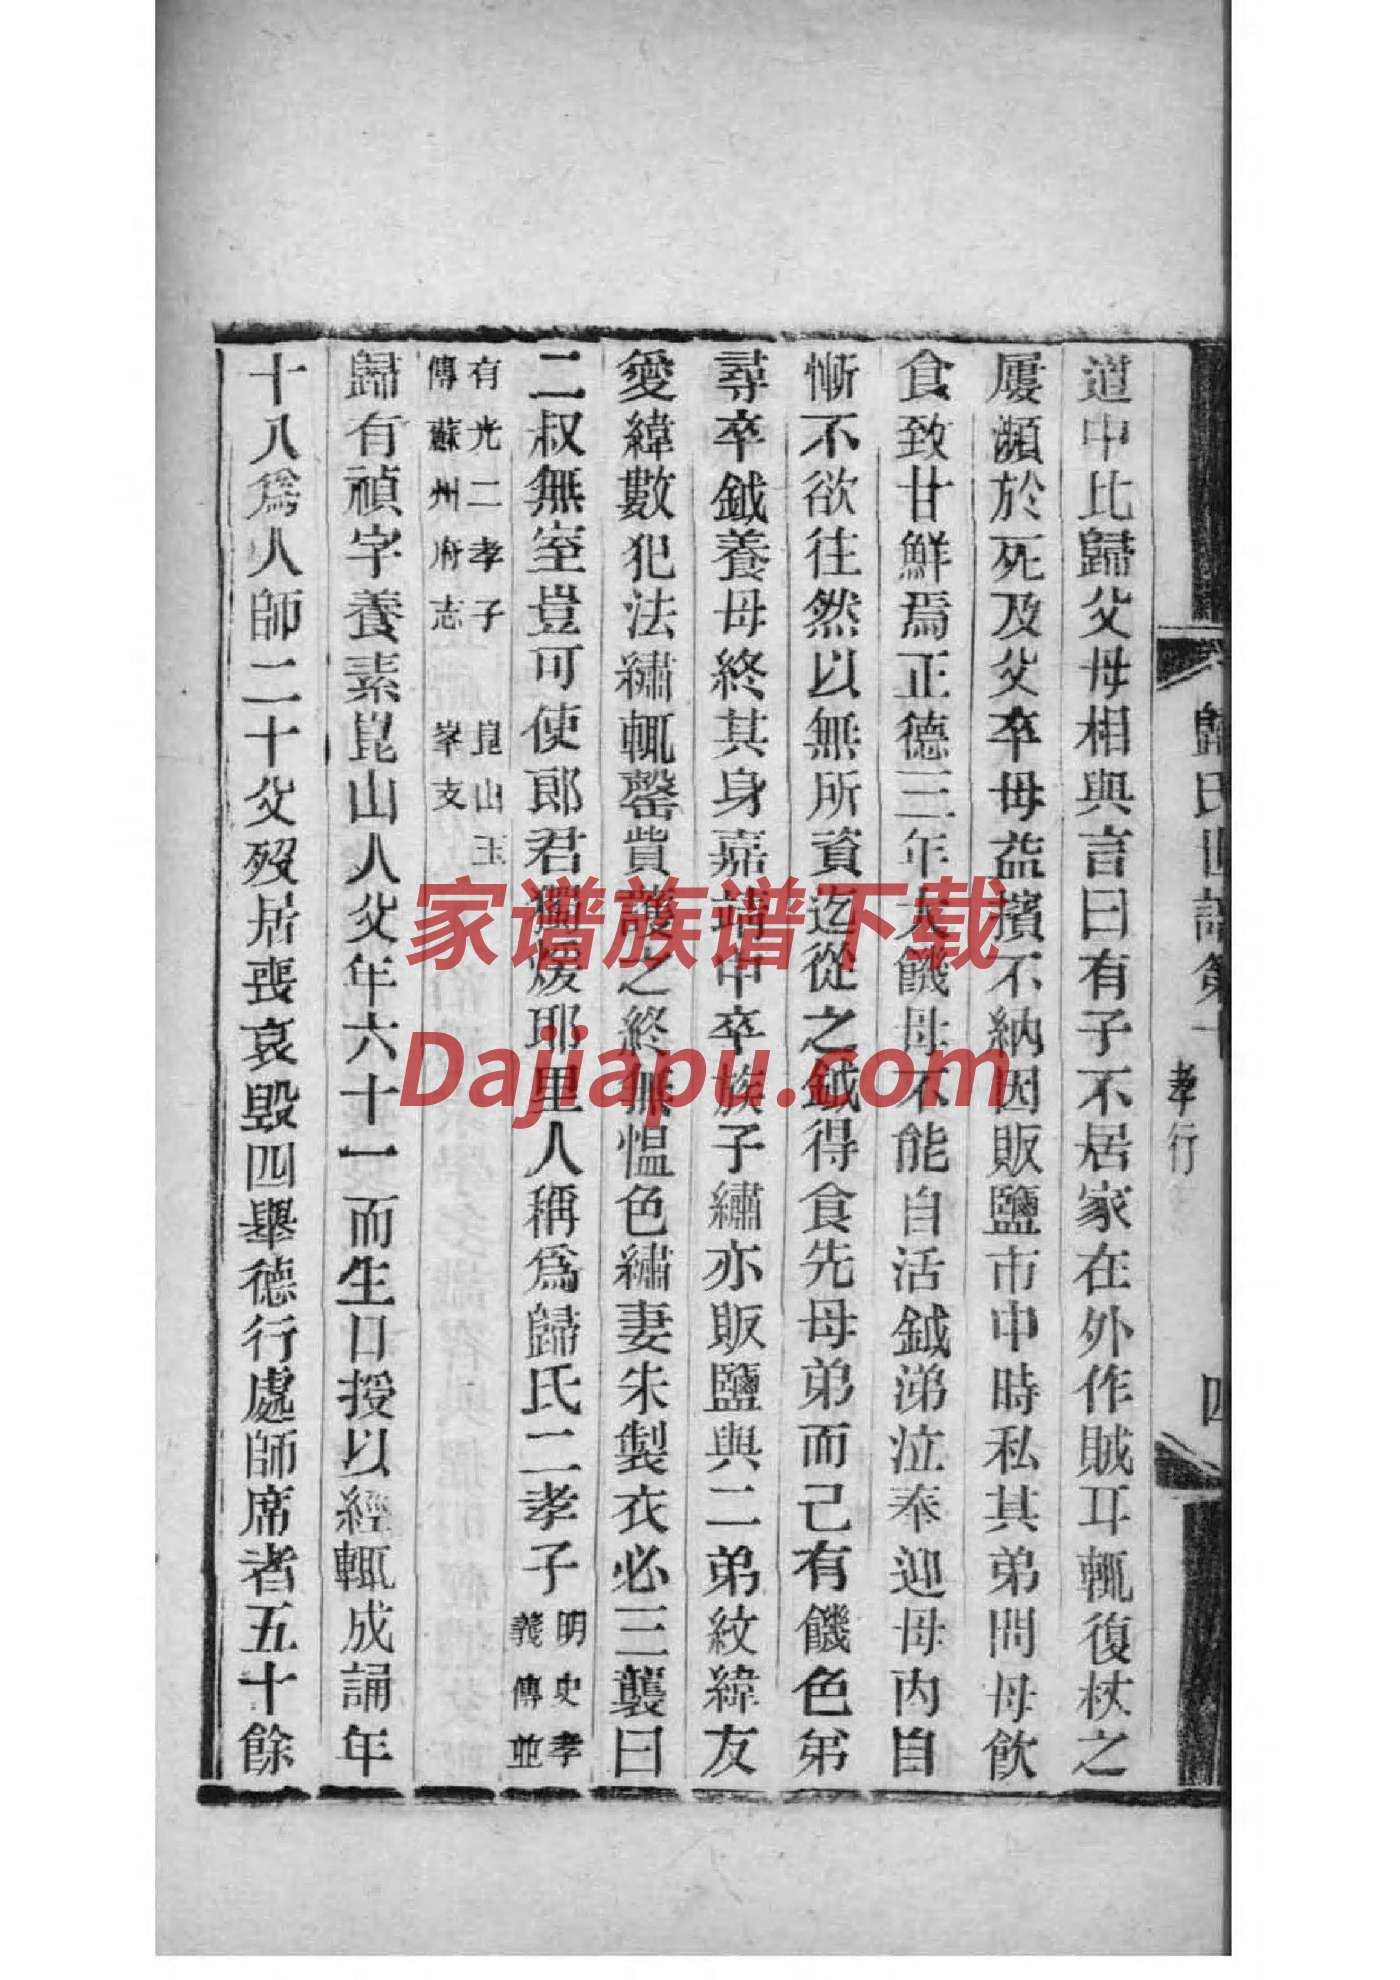 歸氏世譜第十
孝行
四
道中比歸父母相與言曰有子不居家在外作賊耳輒復杖之
屢瀕於死及父卒母益擯不納因販鹽市中時私其弟問母飲
食致甘鮮焉正德三年大饑母不能自活鉞涕泣奉迎母內自
慚不欲往然以無所資迄從之鉞得食先母弟而己有饑色弟
尋卒鉞養母終其身嘉靖中卒族子繡亦販鹽與二弟紋緯友
愛緯數犯法繡輒罄貲護之終無慍色繡妻朱製衣必三襲曰
二叔無室豈可使郎君獨煖耶里人稱爲歸氏二孝子
明史孝
義傳並
有光二孝子 崑山玉
傳蘇州府志 峯支
歸有禎字養素崑山人父年六十一而生口授以經輒成誦年
十八爲人師二十父歿居喪哀毀四舉德行處師席者五十餘
家谱族谱下载
Dajiapu.com